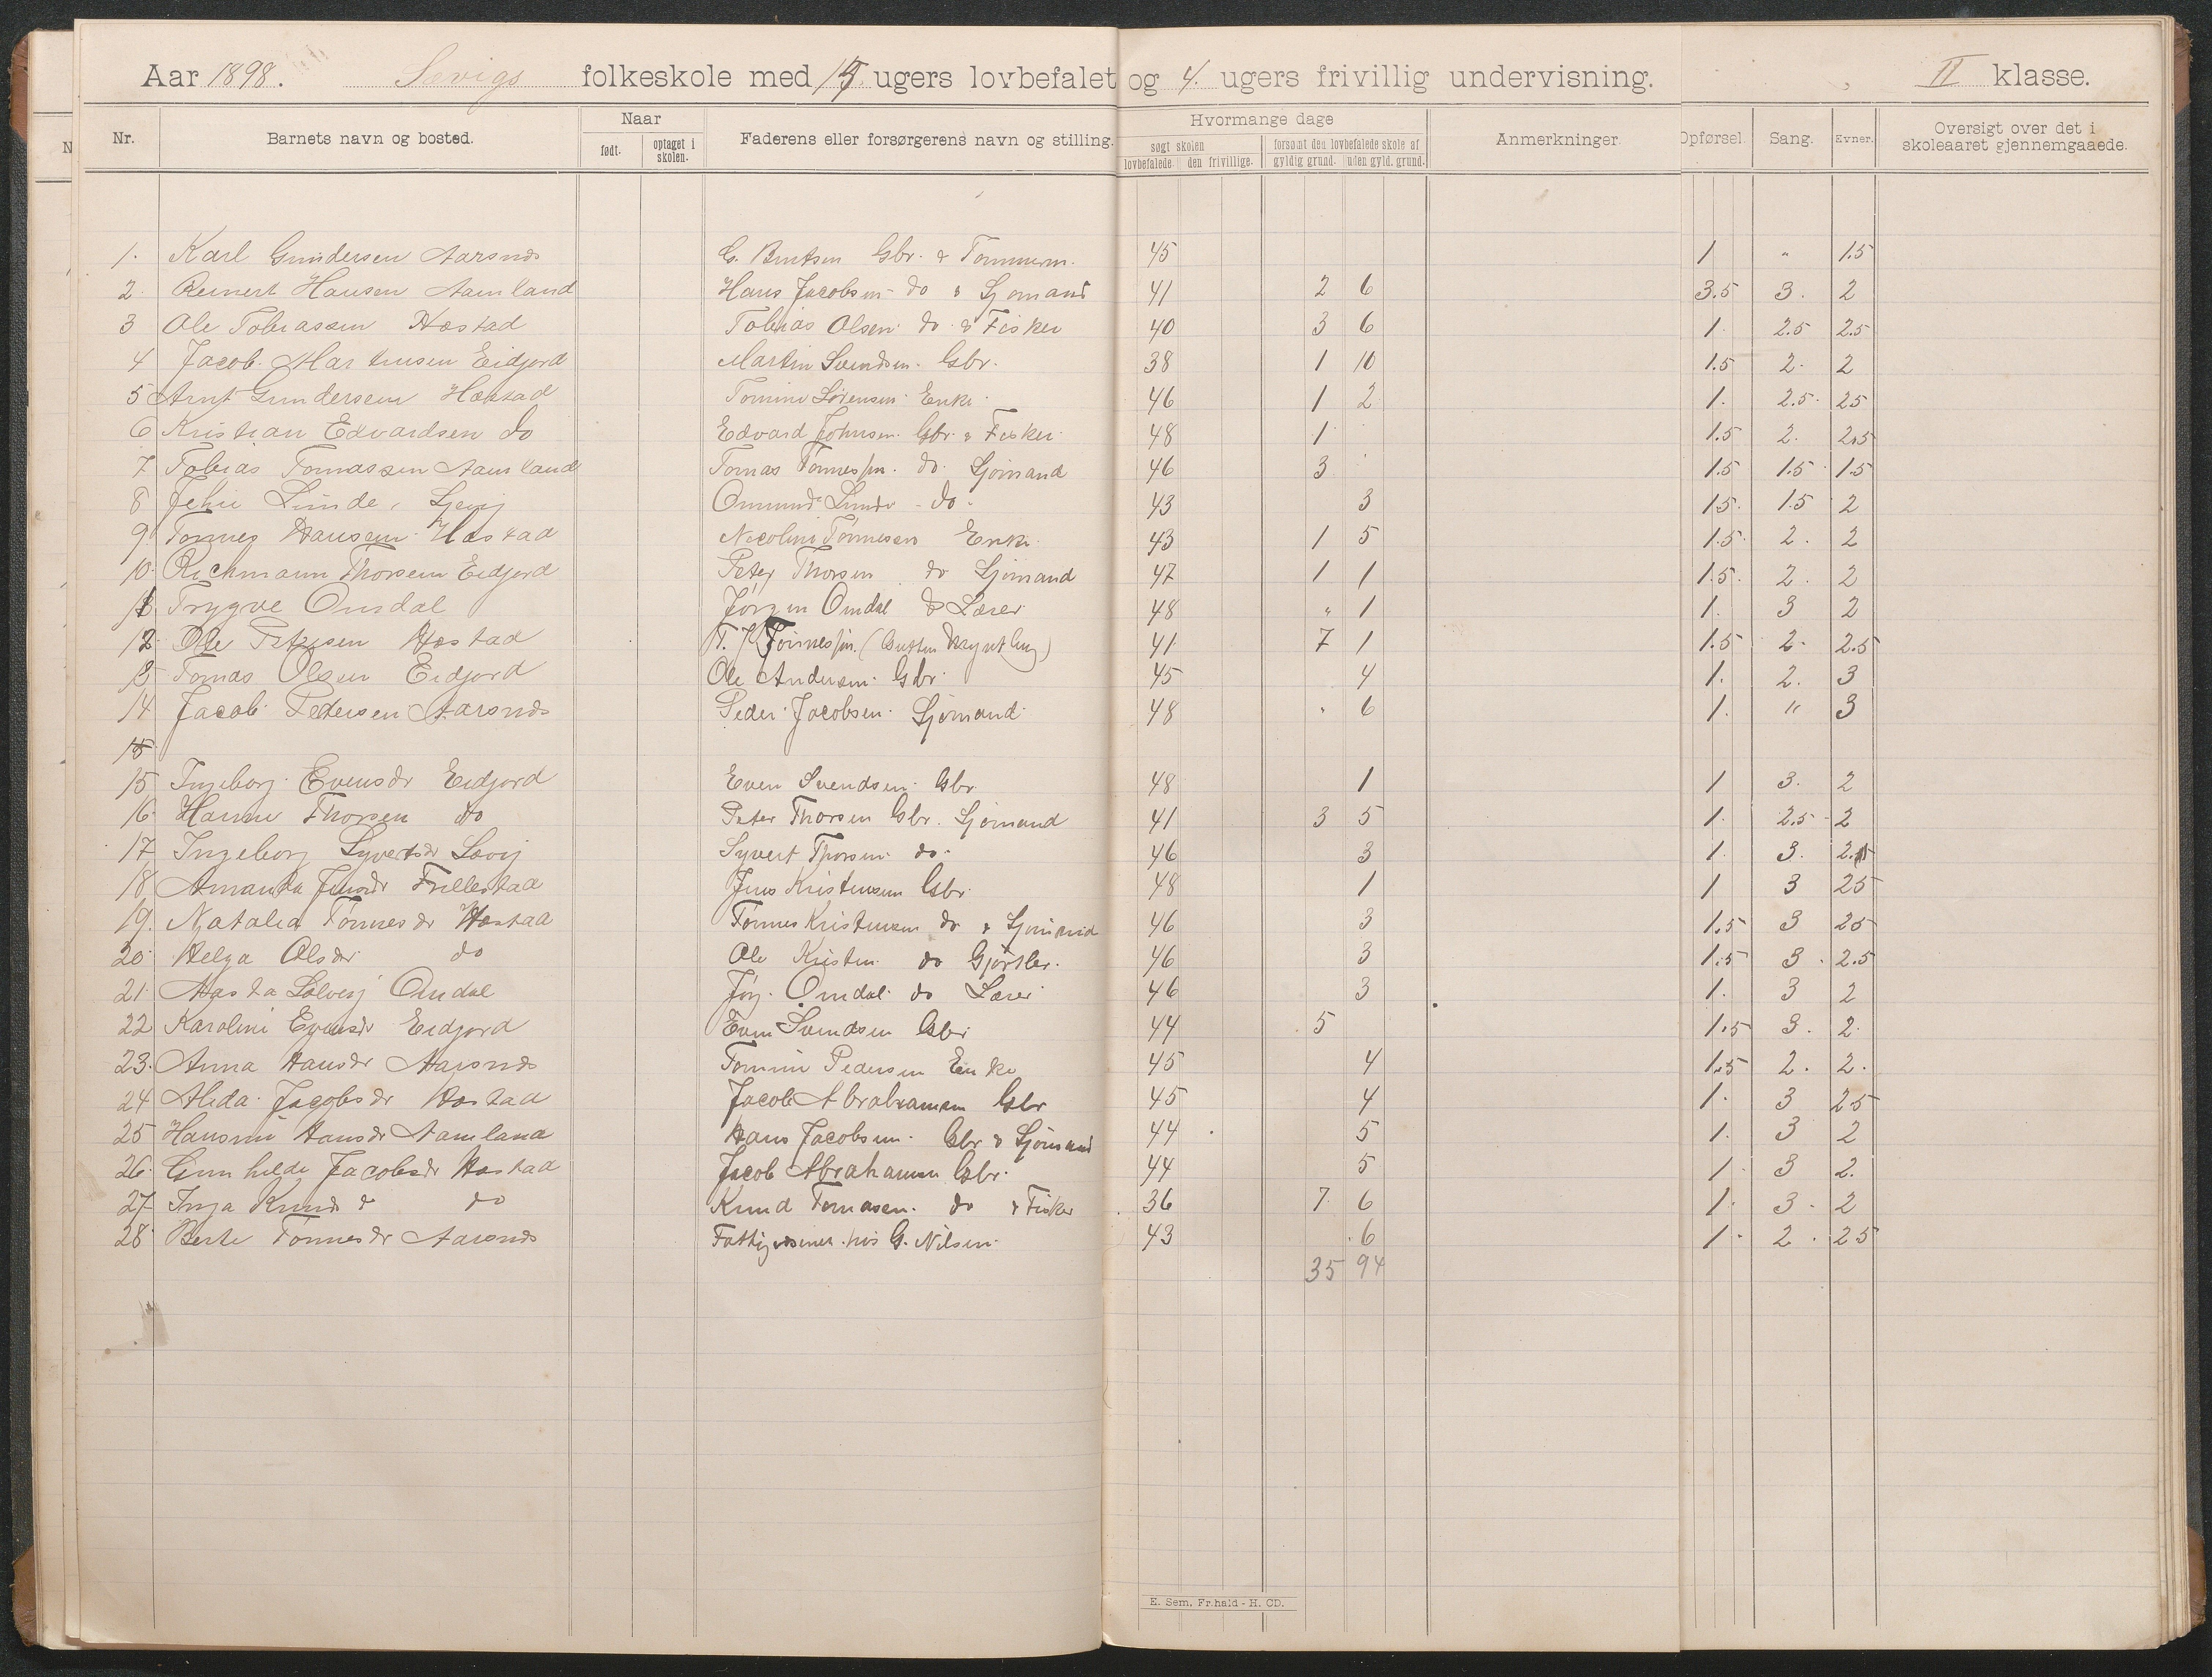 Aar 1898. Sævigs folkeskole med 15 ugers lovbefalet og 4. ugers frivillig undervisning. II klasse.
Nr. Barnets navn og bosted. Naar født. optaget i skolen. Faderens eller forsørgerens navn og stilling. Hvormange dage søgt skolen lovbefalede. den frivillige. forsømt den lovbefalede skole af gyldig grund. uden gyld. grund. Anmerkninger Opførsel. Sang. Evner. Oversigt over det i skoleaaret gjennemgaaede.
1. Karl Gundersen Aarsnes G. Berntsen Gbr. & Tømmerm. 45 1 " 1.5
2. Reinert Hansen Aamland Hans Jacobsen do & Sjømand 41 2 6 3.5 3. 2
3 Ole Tobiassen Hæstad Tobias Olsen do & Fisker 40 3 6 1. 2.5 2.5
4 Jacob Martinsen Eidjord Martin Svendsen. Gbr. 38 1 10 1.5 2. 2
5 Arnt Gundersen Hæstad Tomine Sørensen Enke. 46 1 2 1. 2.5. 25
6 Kristian Edvardsen do Edvard Johnsen Gbr. & Fisker. 48 1 1.5 2. 2.5
7. Tobias Tomassen Aamland Tomas Tønnessen. do. Sjømand 46 3 1.5 1.5 1.5
8 Jehu Linde, Sævig Omund Linde do. 43 3 15. 1.5 2
9. Tønnes Hansen Hæstad Nicoline Tønnesen Enke. 43 1 5 1.5. 2. 2
10. Richmann Thorsen Eidjord Peter Thorsen do Sjømand 47 1 1 1.5. 2. 2
11 Trygve Omdal Jørgen Omdal do Lærer 48 " 1 1. 3 2
12. Ole Petersen Hæstad Tønnessen. 41 7 1 1.5 2. 2.5
13 Tomas Olsen Eidjord Ole Andersen. Gbr. 45 4 1. 2. 3
14 Jacob Pedersen Aarsnes Peder Jacobsen. Sjømand 48 " 6 1. " 3
15
15 Ingeborg Evensdr Eidjord Even Svendsen Gbr 48 1 1 3. 2
16. Hanne Thorsen do Peter Thorsen Gbr. Sjømand 41 3 5 1. 2.5 2
17 Ingeborg Syvertsdr Sævig Syvert Thorsen do. 46 3 1. 3.
18 Amanda Jensdr Frillestad Jens Kristensen Gbr. 48 1 1 3 25
19. Natalia Tønnesdr Hæstad Tønnes Kristensen do & Sjømand 46 3 1.5 3 25
20. Helga Olsdr do Ole Kristen do Gjørtler. 46 3 1.5 3. 2.5
21. Solveig Omdal Jørg. Omdal do Lærer 46 3 1. 3 2
22 Karoline Evensdr Eidjord Even Svendsen Gbr 44 5 1.5 3. 2.
23. Anna Hansdr Aarsnes Tomine Pedersen Enke 45 4 1.5 2. 2.
24 Alida Jacobsdr Hæstad Jacob Abrahamsen Gbr 45 4 1. 3 25
25 Hansine Hansdr Aamland Hans Jacobsen. Gbr & Sjømand 44 5 1. 3 2
26. Gunhilde Jacobsdr Hæstad Jacob Abrahamsen Gbr. 44 5 1 3 2.
27 Inga Knudsdr do Knud Tomasen. do & Fisker 36 7 6 1. 3. 2
28 Berte Tønnesdr Aarsnes hos G. Nilsen. 43 6 1. 2. 25
35 94
E. Sem, Fr.hald - H. CD.